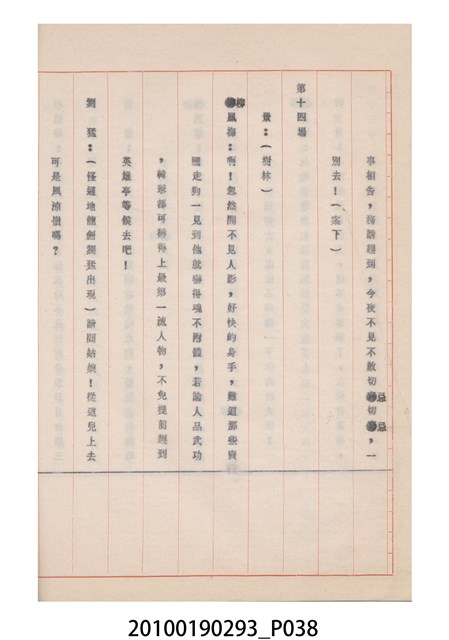 事相告，務請趕到，今夜不見不散切忌切忌，一
別去！（案下）
第十四場
景：（樹林）
柳風梅：啊！忽然間不見人影，好快的身手，難道那些賣
國走狗一見到他就嚇得魂不附體，若論人品武功
，韓形都可稱得上最第一流人物，不免提前趕到
英雄亭等候去吧！
劉 猛：（怪道地能劍劉猛出現）請問姑娘！從這兒上去
可是風涼嶺嗎？
20100190293_P038